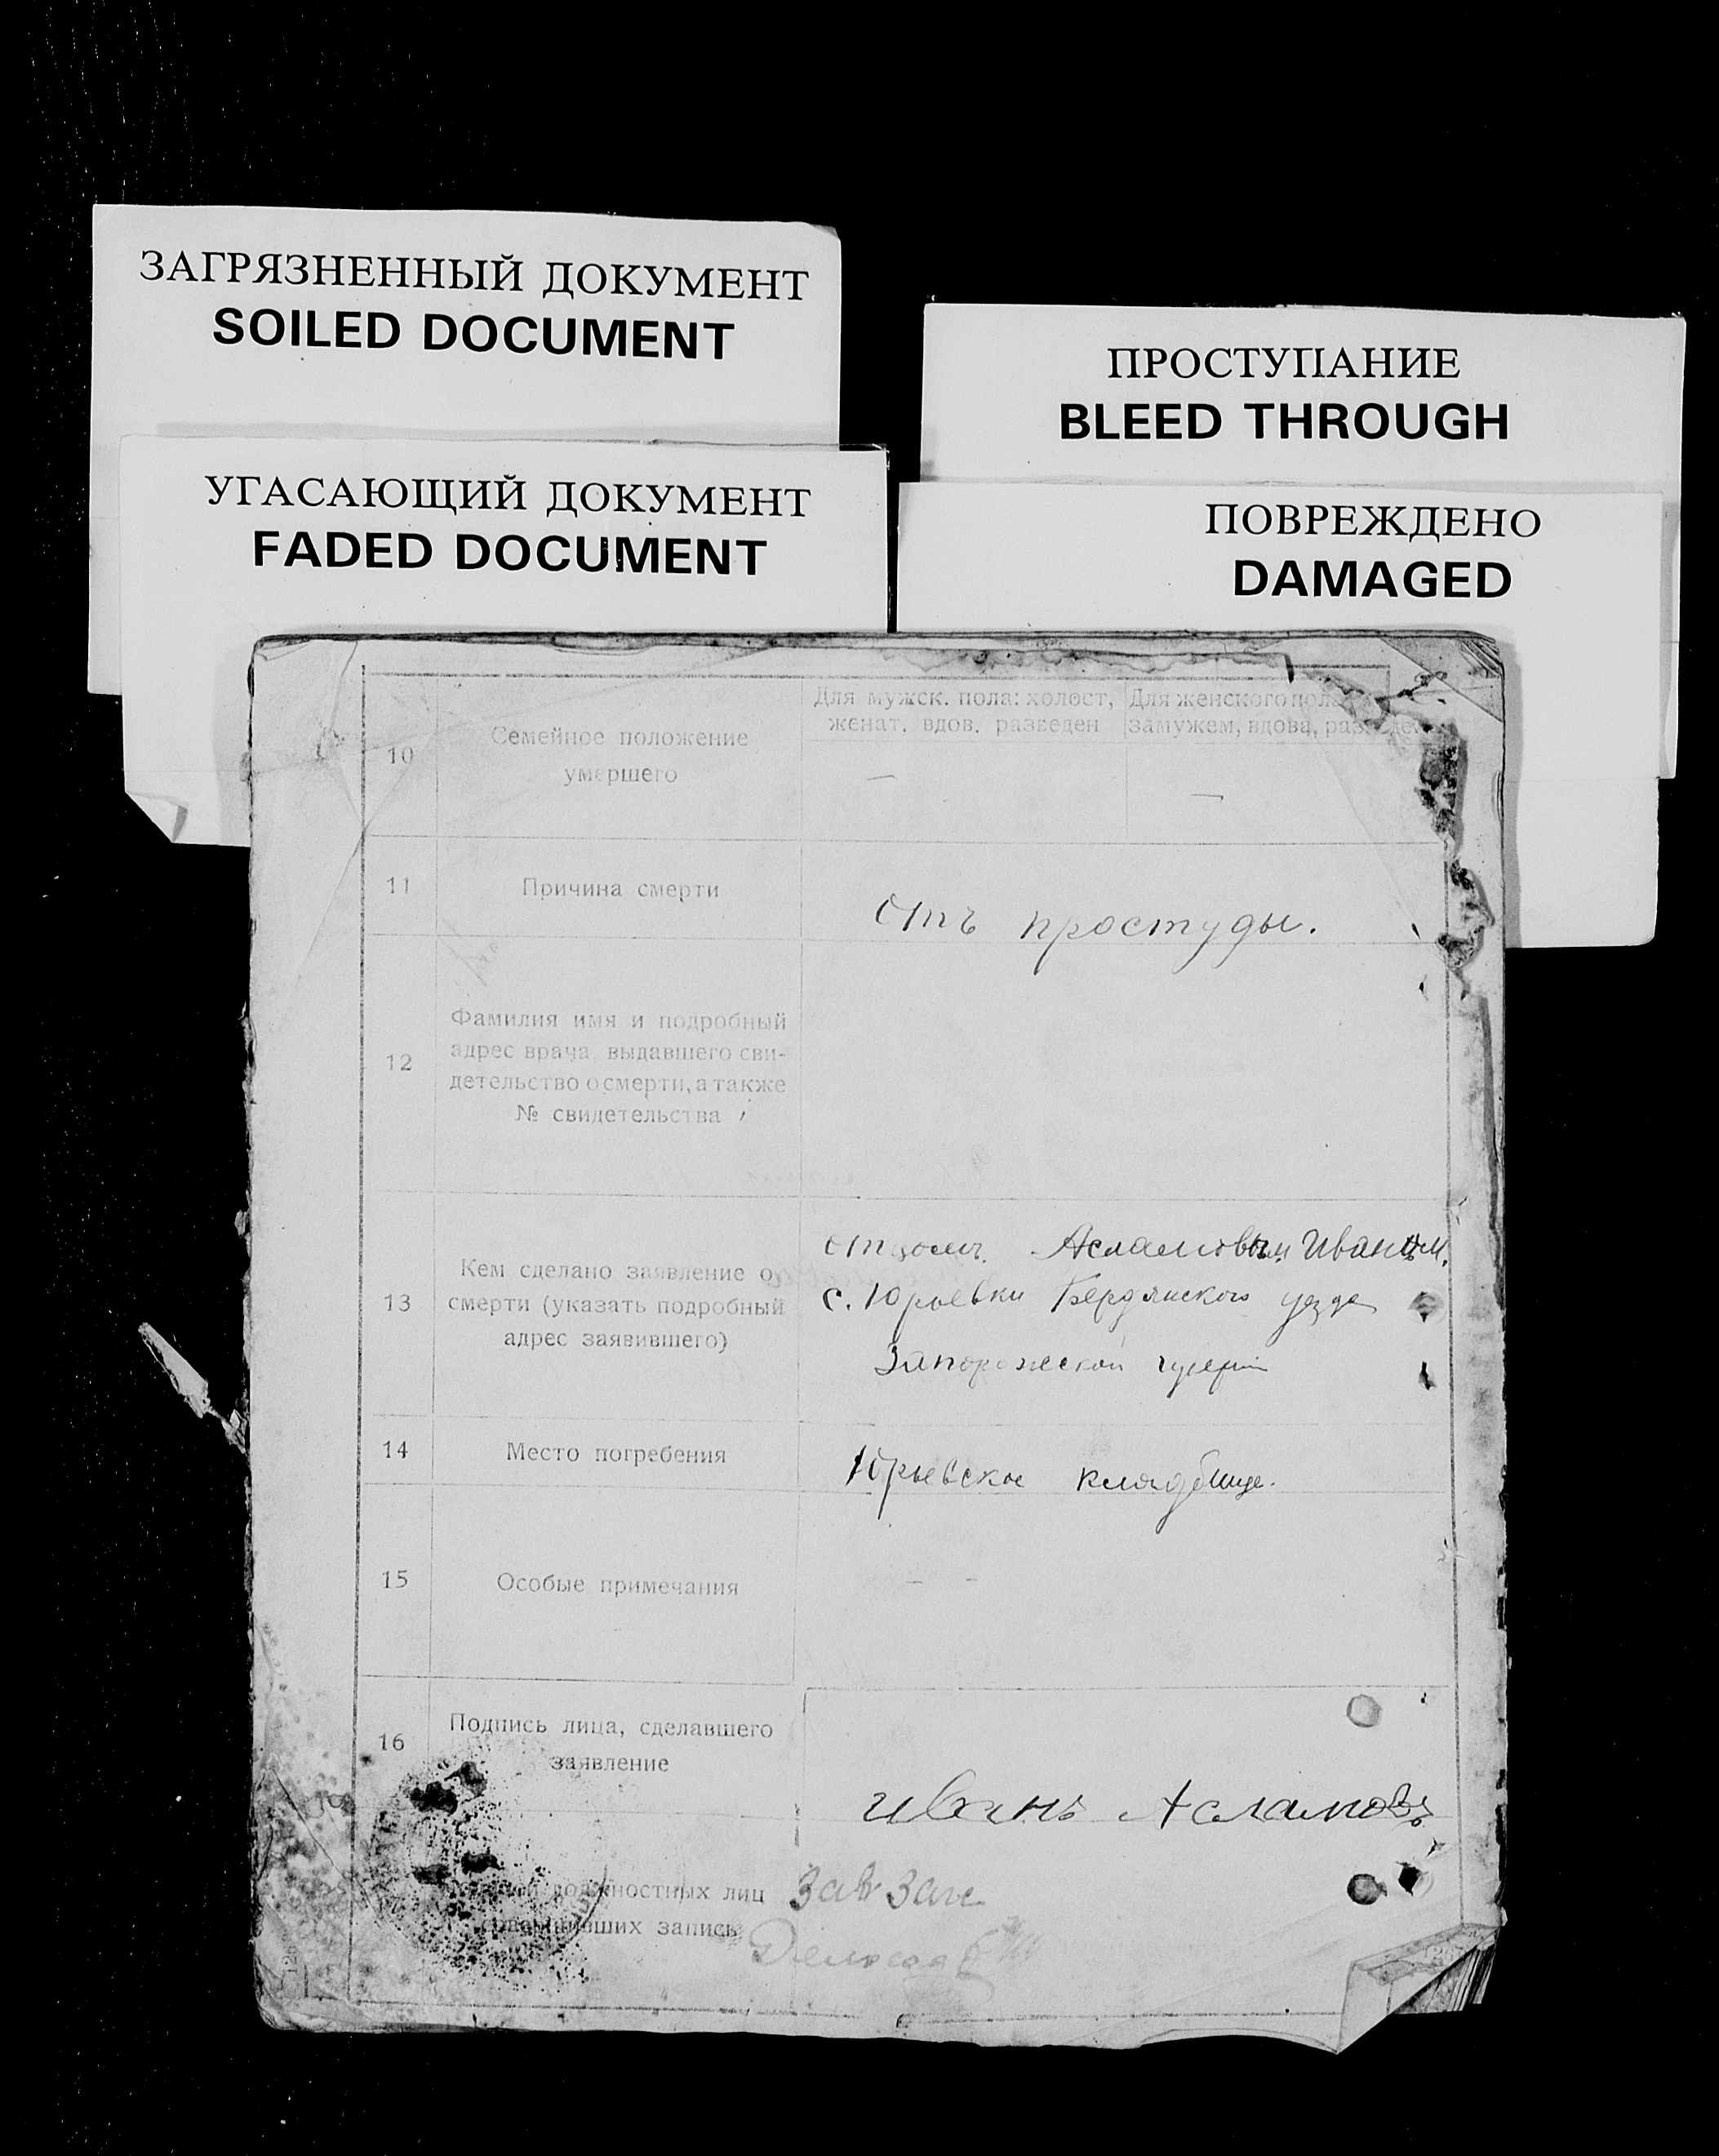 ЗАГРЯЗНЕННЫЙ ДОКУМЕНТ
SOILED DOCUMENT
ПРОСТУПАНИЕ
BLEED THROUGH
УГАСАЮЩИЙ ДОКУМЕНТ
FADED DOCUMENT
ПОВРЕЖДЕНО
DAMAGED
10
Семейное положение
умершего
Для мужск. пола: холост,
женат, вдов, разведен
Для женского пола
замужем, вдова,
—
—
11
Причина смерти
Отъ простуды.
12
Фамилия имя и подробный
адрес врача, выдавшего сви-
детельство о смерти, а также
№ свидетельства
13
Кем сделано заявление о
смерти (указать подробный
адрес заявившего)
отцомъ Асламовым Иваном.
с. Юрьевки Бердянского уезда
Запорожской губернии
14
Место погребения
Юрьевское кладбище.
15
Особые примечания
- -
16
Подпись лица, сделавшего
заявление
Иванъ Асламовъ
должностных лиц
совершивших запись
Зав Загс